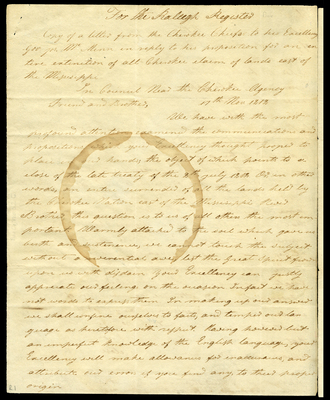 For the Raleigh Register
Copy of a letter from the Cherokee Chiefs to his Excellency
Gov. Jos. McMinn in reply to his proposition for an en-
tire extinction of all Cherokee claim of lands east of
the Mississippi
In Council Near the Cherokee Agency
17th Nov 1818
Friend and Brother,
We have with the most
profound attention examined the communications and
propositions which your Excellency thought proper to
place in our hands the object of which points to a
close of the late treaty of the 8th July 1817 Or in other
words an entire surrender of all the lands held by
the Cherokee Nation east of the Mississippi River
Brother the question is to us of all others the most im-
portant Warmly attached to the soil which gave us
birth and sustenance, we cannot touch the subject
without a reverential awe, lest the Great Spirit frown
upon us with disdain your Excellency can justly
appreciate our feelings on the occasion In fact we have
not words to express them In making up our answer
we shall confine ourselves to facts, and temper our lan-
guage as heretofore with respect. Having however but
an imperfect knowledge of the English language, your
Excellency will make allowance for inaccuracies, and
attribute our errors if you find any to their proper
origin